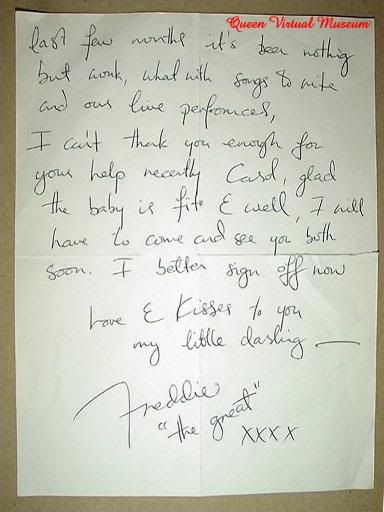 Queen Virtual Museum
last few months it's been nothing
but work, what with songs to write
and our live perfomces,
I can't thank you enough for
your help recently Carol, glad
the baby is fit & well, I will
have to come and see you both
soon. I better sign off now
Love & Kisses to you
my little darling —
Freddie
"the great"
xxxx